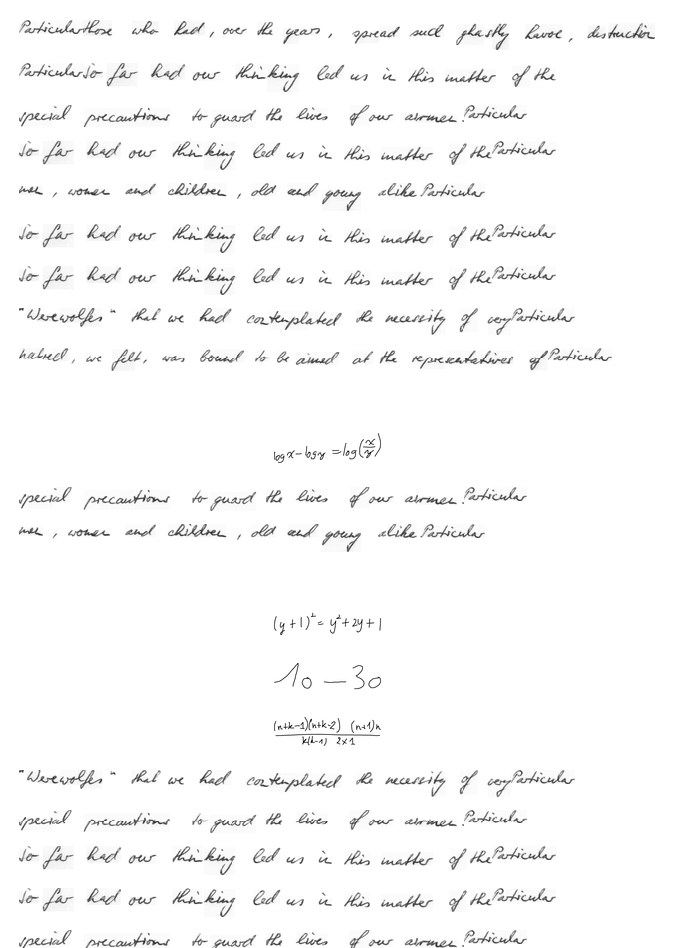 Particularthose who had, over the years, spread such ghastly havoc, destruction
ParticularSo far had our thinking led us in this matter of the
special precautions to guard the lives of our airmen.Particular
So far had our thinking led us in this matter of theParticular
men, women and children, old and young alikeParticular
So far had our thinking led us in this matter of theParticular
So far had our thinking led us in this matter of theParticular
"Werewolfes" that we had contemplated the necessity of veryParticular
hatred, we felt, was bound to be aimed at the representatives ofParticular
log x - log y = log(x/y)
special precautions to guard the lives of our airmen.Particular
men, women and children, old and young alikeParticular
(y+1)² = y²+2y+1
10 - 30
(n+k-1)(n+k-2) (n+1)n / k(k-1) 2×1
"Werewolfes" that we had contemplated the necessity of veryParticular
special precautions to guard the lives of our airmen.Particular
So far had our thinking led us in this matter of theParticular
So far had our thinking led us in this matter of theParticular
special precautions to guard the lives of our airmen.Particular